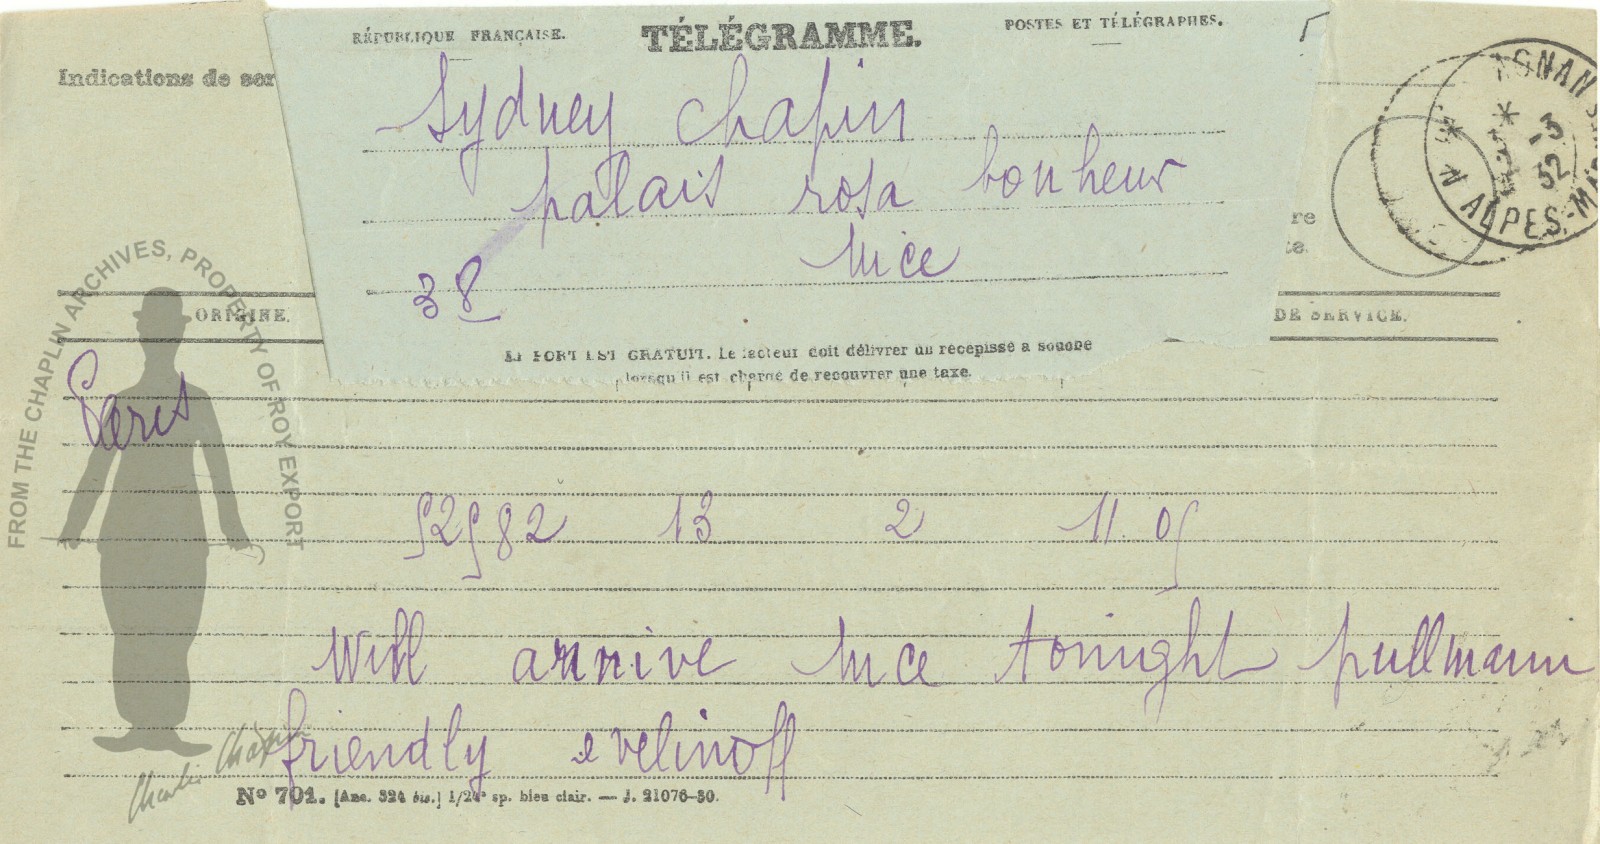 RÉPUBLIQUE FRANÇAISE. TÉLÉGRAMME. POSTES ET TÉLÉGRAPHES.
Indications de ser
Sydney Chapin
palais rosa bonheur
Nice
38
re
te.
AGNAN
* *
-3
32
ALPES-MAR
ORIGINE. DE SERVICE.
LE PORT EST GRATUIT. Le facteur doit délivrer un récépissé à souche
lorsqu'il est chargé de recouvrer une taxe.
Paris
52582 13 2 11.05
Will arrive Nice tonight pullmann
friendly evelinoff
Nº 701. [Anc. 524 bis.] 1/24e sp. bleu clair. — J. 21076-30.
FROM THE CHAPLIN ARCHIVES, PROPERTY OF ROY EXPORT
Charlie Chaplin